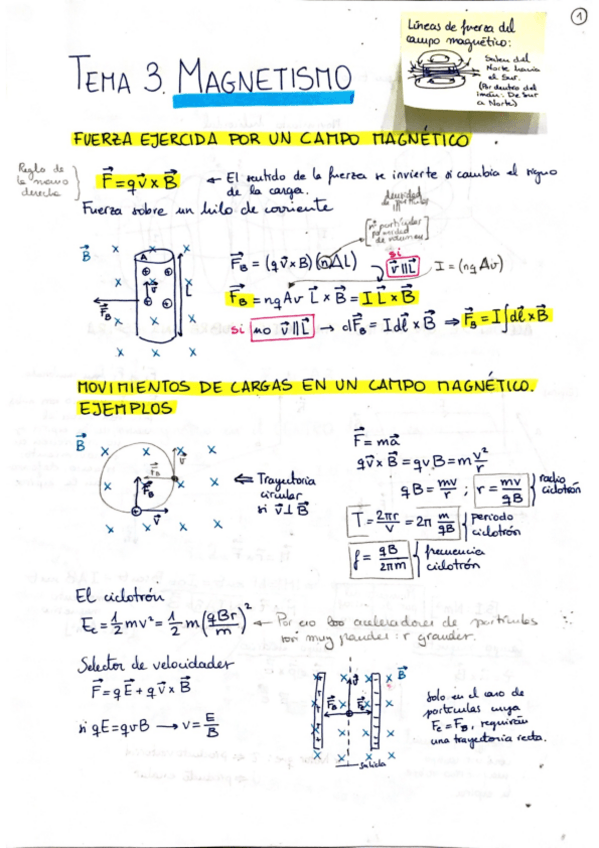 1
Líneas de fuerza del
campo magnético:
Salen del
Norte hacia
el Sur.
(Por dentro del
imán: De Sur
a Norte)
TEMA 3. MAGNETISMO
FUERZA EJERCIDA POR UN CAMPO MAGNÉTICO
Regla de
la mano
derecha
F⃗ = qv⃗ x B⃗
← El sentido de la fuerza se invierte si cambia el signo
de la carga.
Fuerza sobre un hilo de corriente
densidad
de partículas
nº partículas
por unidad
de volumen
B⃗
A
v⃗
L
F⃗B
F⃗B = (qv⃗ x B⃗)(nAL)
si
v⃗ || L⃗
I = (nqAv)
F⃗B = nqAv L⃗ x B⃗ = I L⃗ x B⃗
si no v⃗ || L⃗ → dF⃗B = Idl⃗ x B⃗ ⇒ F⃗B = I∫dl⃗ x B⃗
MOVIMIENTOS DE CARGAS EN UN CAMPO MAGNÉTICO.
EJEMPLOS
B⃗
v⃗
F⃗B
F⃗B
v⃗
⇐ Trayectoria
circular
si v⃗ ⊥ B⃗
F⃗ = ma⃗
qv⃗ x B⃗ = qvB = m v²/r
qB = mv/r ; r = mv/qB
radio
ciclotrón
T = 2πr/v = 2π m/qB
periodo
ciclotrón
f = qB/2πm
frecuencia
ciclotrón
El ciclotrón
Ec = 1/2 mv² = 1/2 m(qBr/m)²
← Por eso los aceleradores de partículas
son muy grandes: r grandes.
Selector de velocidades
F⃗ = qE⃗ + qv⃗ x B⃗
si qE = qvB → v = E/B
v⃗
B⃗
Salida
Solo en el caso de
partículas cuya
FE = FB, seguirán
una trayectoria recta.